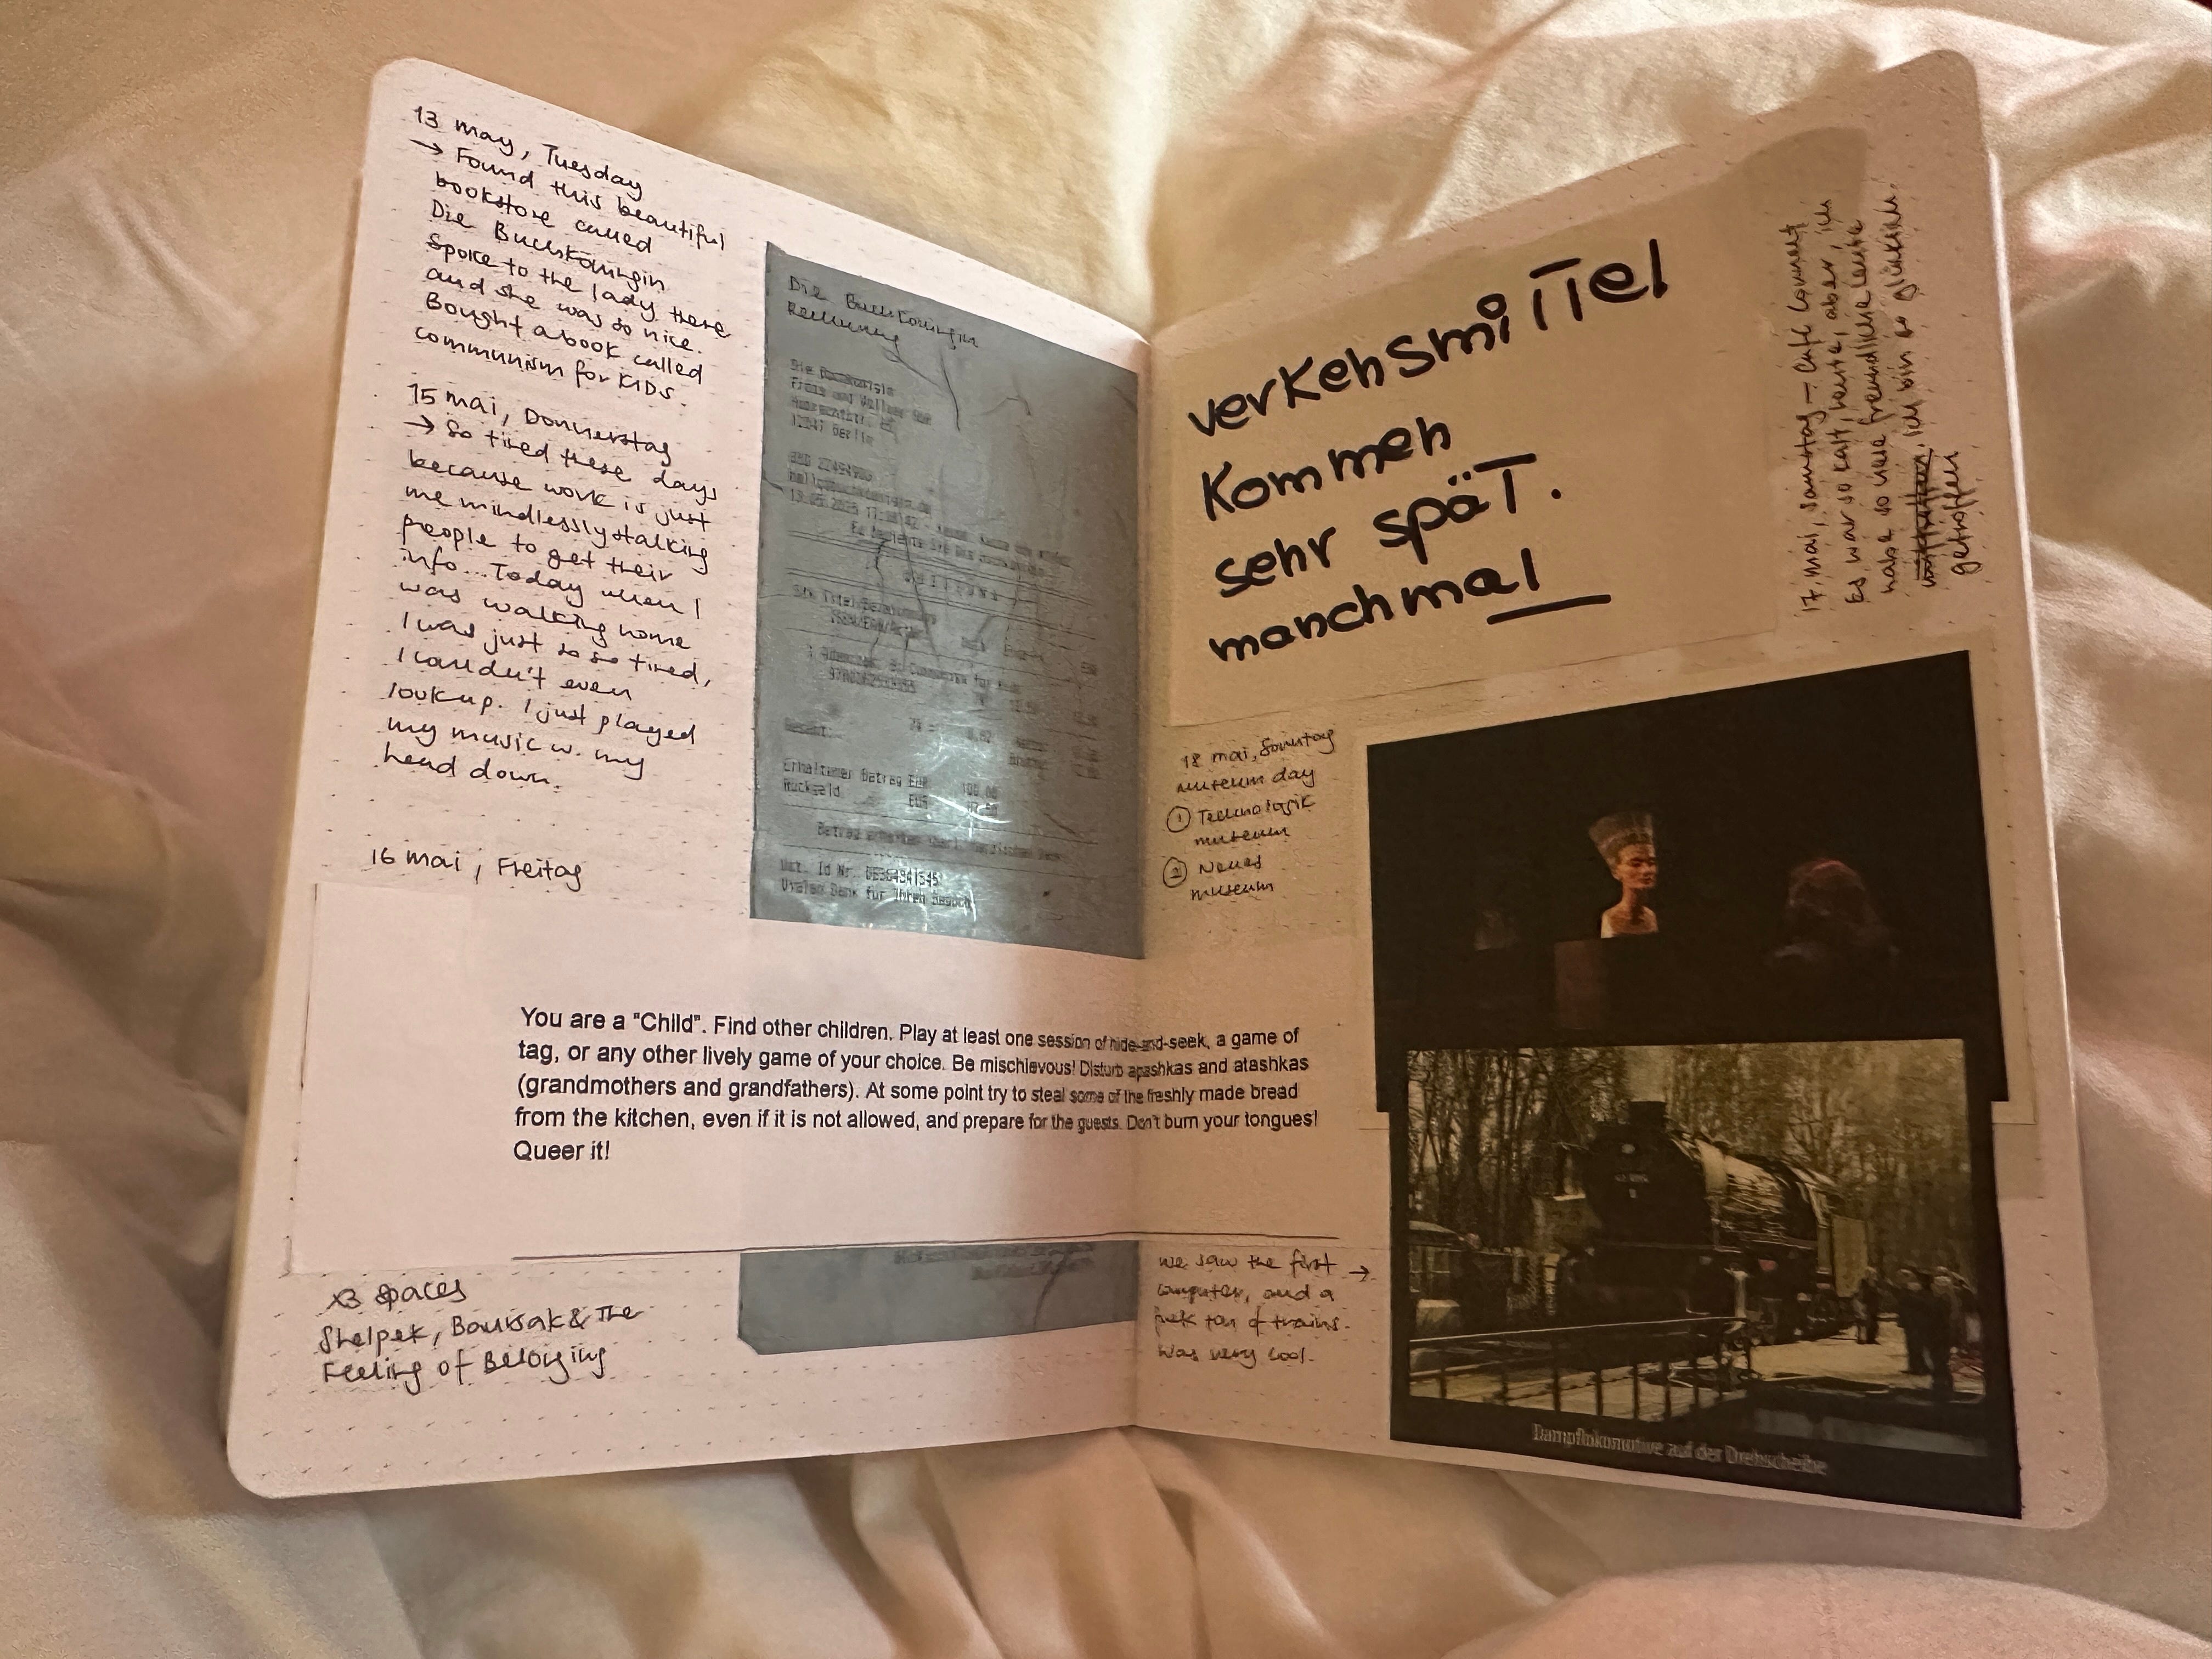 13 may, Tuesday
→ Found this beautiful
bookstore called
Die Buchskönigin
Spoke to the lady there
and she was so nice.
Bought a book called
communism for KIDS.
15 mai, Donnerstag
→ So tired these days
because work is just
me mindlessly stalking
people to get their
info... Today when I
was walking home
I was just so so tired,
I couldn't even
look up. I just played
my music w. my
head down.
16 mai, Freitag
Die Buchkönigin
Rechnung
12047 Berlin
Gesamt:
Erhaltener Betrag EUR 100.00
Rückgeld EUR
Ust. Id Nr. DE364941545
Vielen Dank für Ihren Besuch
You are a "Child". Find other children. Play at least one session of hide-and-seek, a game of
tag, or any other lively game of your choice. Be mischievous! Disturb apashkas and atashkas
(grandmothers and grandfathers). At some point try to steal some of the freshly made bread
from the kitchen, even if it is not allowed, and prepare for the guests. Don't burn your tongues!
Queer it!
x3 spaces
Shelpek, Baursak & The
Feeling of Belonging
verkehsmiTTel
Kommen
sehr späT.
manchmal
17, mai, samstag – Café Connect
Es war so kalt, heute, aber, ich
habe so viele freundliche Leute
Ich bin so glücklich.
getroffen
18 mai, Sonntag
museum day
① Technologik
museum
② Neues
museum
we saw the first →
computer, and a
fuck ton of trains.
Was very cool.
Dampflokomotive auf der Drehscheibe